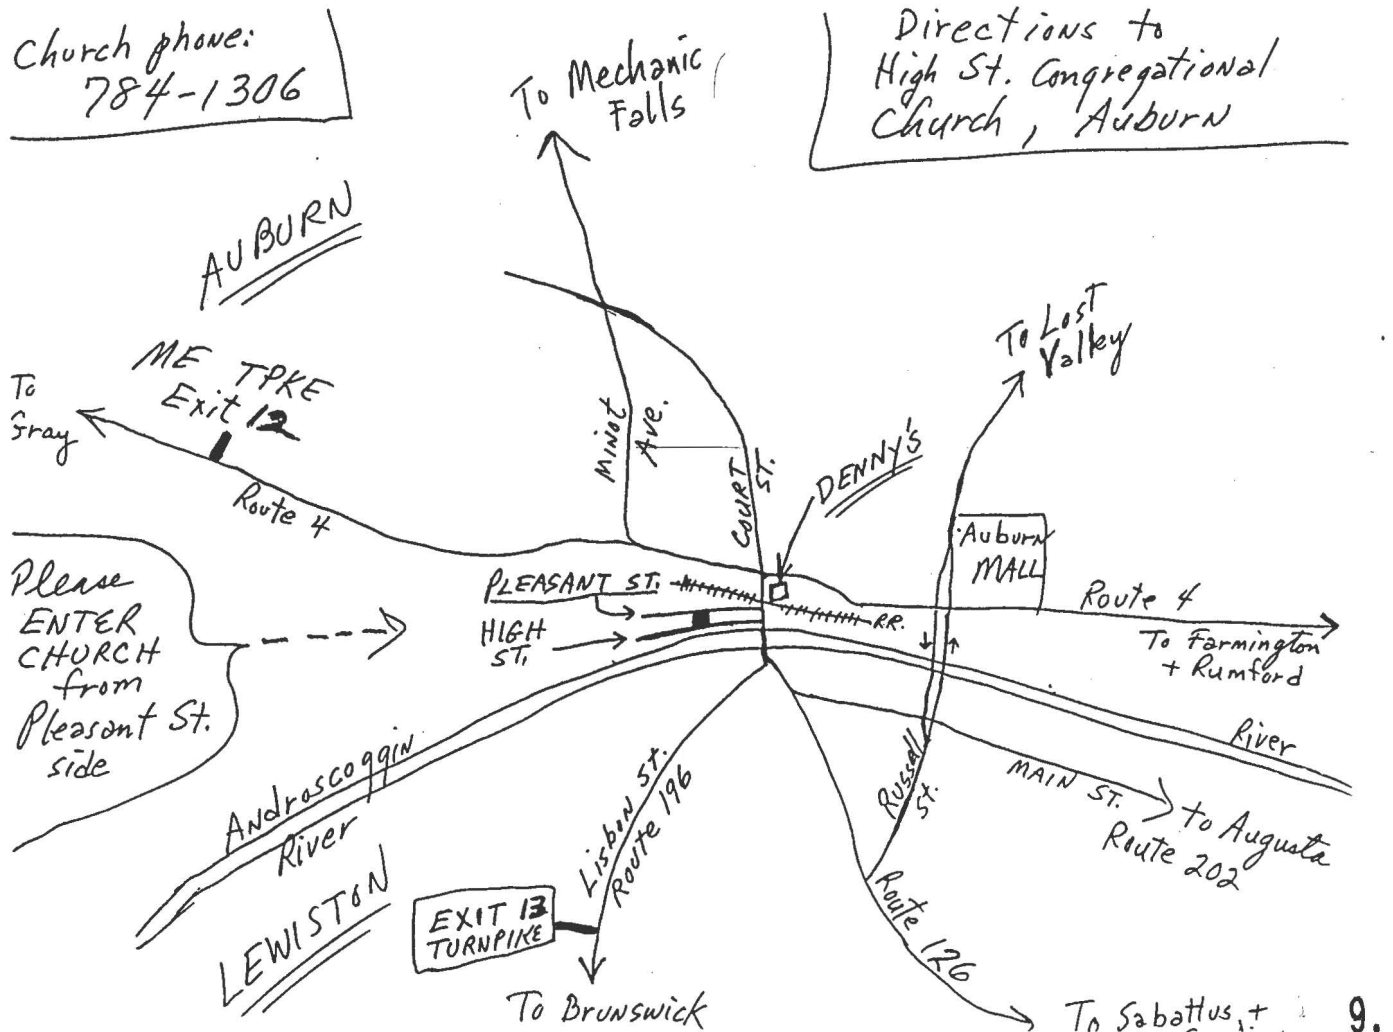 Church phone:
784-1306
Directions to
High St. Congregational
Church, Auburn
To Mechanic
Falls
AUBURN
ME TPKE
Exit 12
To
Gray
Route 4
MINOT
AVE.
COURT
ST.
DENNY'S
To Lost
Valley
Auburn
MALL
Route 4
To Farmington
+ Rumford
PLEASANT ST.
HIGH
ST.
RR.
Please
ENTER
CHURCH
from
Pleasant St.
side
Androscoggin
River
River
LEWISTON
Lisbon St.
Route 196
EXIT 13
TURNPIKE
To Brunswick
Russell
St.
MAIN ST.
to Augusta
Route 202
Route 126
To Sabattus, +
9.